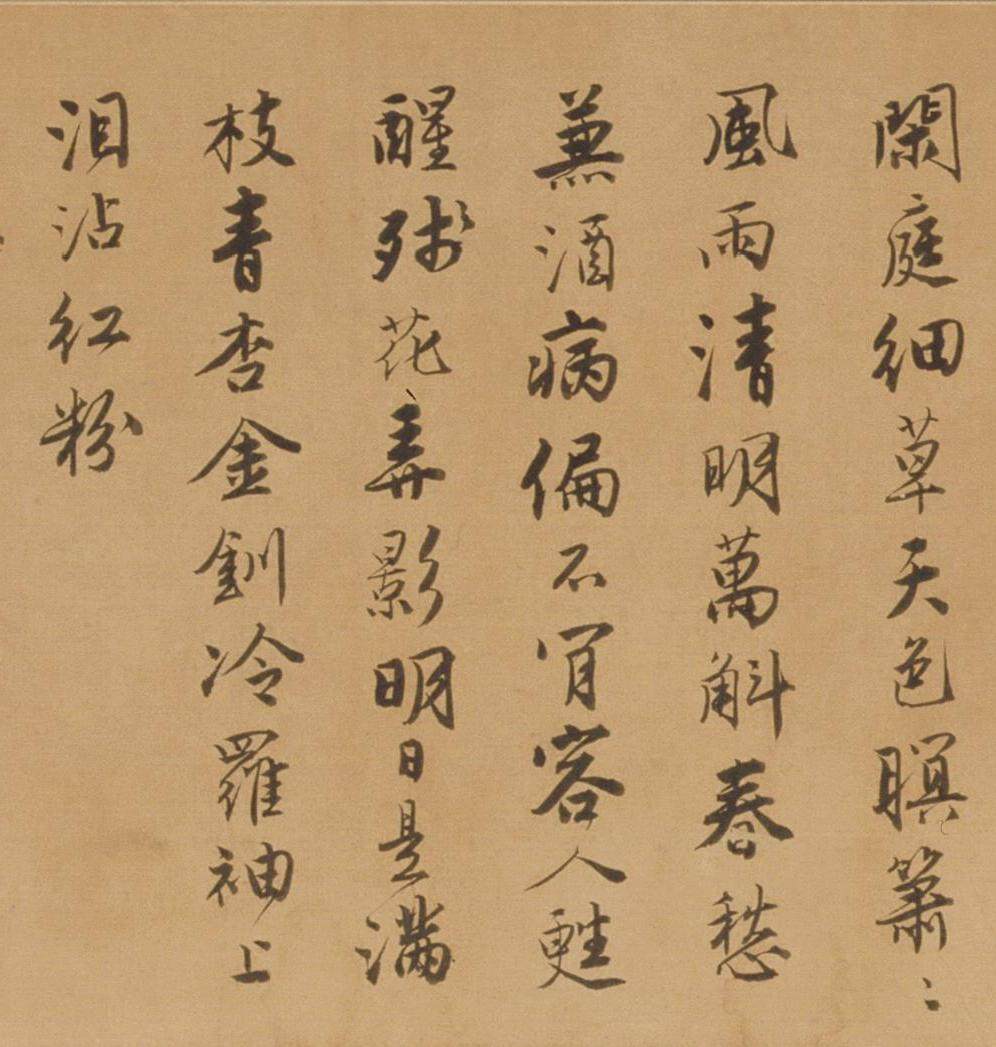 閑庭細草天色暝簫〻
風雨清明萬斛春愁
兼酒病偏不肯容人甦
醒殘花弄影明日是滿
枝青杏金釧冷羅袖上
泪沾紅粉